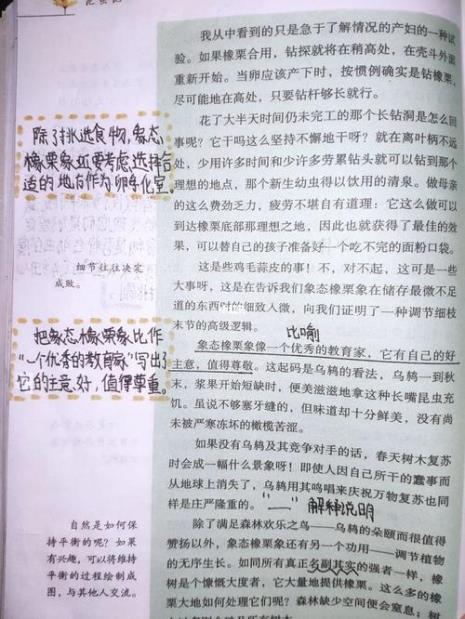 我从中看到的只是急于了解情况的产妇的一种试
验。如果橡栗合用，钻探就将在稍高处，在壳斗外面
重新开始。当卵应该产下时，按惯例确实是钻橡栗，
尽可能地在高处，只要钻杆够长就行。
花了大半天时间仍未完工的那个长钻洞是怎么回
事呢？它干吗这么坚持不懈地干呀？就在离叶柄不远
处，少用许多时间和少许多劳累钻头就可以钻到那个
理想的地点，那个新生幼虫得以饮用的清泉。做母亲
的这么费劲乏力，疲劳不堪自有道理：它这么做可以
到达橡栗底部那理想之地，因此也就获得了最佳的效
果，可以替自己的孩子准备好一个吃不完的面粉口袋。
除了挑选食物，象态
橡栗象还要考虑选择合
适的地方作为卵孵化室。
这是些鸡毛蒜皮的事！不，对不起，这可是一些
大事呀，这是在告诉我们象态橡栗象在储存最微不足
道的东西时的细致入微，向我们证明了一种调节细枝
末节的高级逻辑。
细节往往决定
成败。
比喻
象态橡栗象像一个优秀的教育家，它有自己的好
主意，值得尊敬。这起码是乌鸫的看法，乌鸫一到秋
末，浆果开始短缺时，便美滋滋地拿这种长嘴昆虫充
饥。虽说不够塞牙缝的，但味道却十分鲜美，没有尚
未被严寒冻坏的橄榄苦涩。
把象态橡栗象比作
“一个优秀的教育家”写出了
它的主意好，值得尊重。
如果没有乌鸫及其竞争对手的话，春天树木复苏
时会成一幅什么景象呀！即使人因自己所干的蠢事而
从地球上消失了，乌鸫用其鸣唱来庆祝万物复苏也同
样是庄严隆重的。
“——” 解释说明
除了满足森林欢乐之鸟——乌鸫的朵颐而很值得
赞扬以外，象态橡栗象还有另一个功用——调节植物
的无序生长。如同所有真正名副其实的强者一样，橡
树是个慷慨大度者，它大量地提供橡栗。这么多的橡
栗大地如何处理它们呢？森林缺少空间便会窒息；树
自然是如何保
持平衡的呢？如果
有兴趣，可以将维持
平衡的过程绘制成
图，与其他人交流。